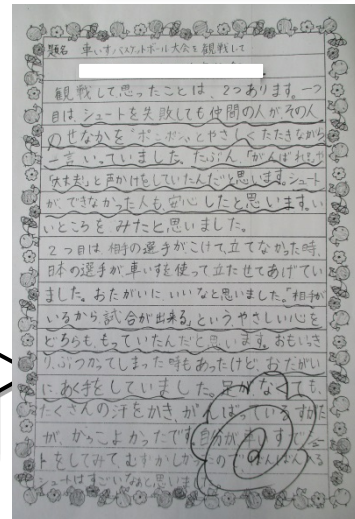 題名 車いすバスケットボール大会を観戦して
観戦して思ったことは、2つあります。一つ
目は、シュートを失敗しても仲間の人がその人
のせなかを"ポンポン"とやさしくたたきながら
一言いっていました。たぶん、「がんばれ」や
「大丈夫」と声かけをしていたんだと思います。シュート
が、できなかった人も、安心したと思います。い
いところをみたと思いました。
2つ目は、相手の選手がこけて、立てなかった時、
日本の選手が、車いすを使って立たせてあげてい
ました。おたがいに、いいなと思いました。「相手が
いるから、試合が出来る」という、やさしい心を
どちらも、もっていたんだと思います。おもいっき
り、ぶつかってしまった時もあったけど、おたがい
にあく手をしていました。足が、なくても、
たくさんの汗をかき、がんばっているすがた
が、かっこよかったです。自分が車いすで
トをしてみて、むずかしかったので、
シュートはすごいなあと思いま